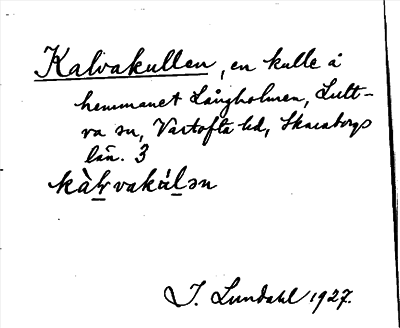 Kalvakullen, en kulle å
hemmanet Långholmen, Lutt-
ra sn, Vartofta hd, Skaraborgs
län. 3
kàlvakúlən
J. Lundahl 1927.